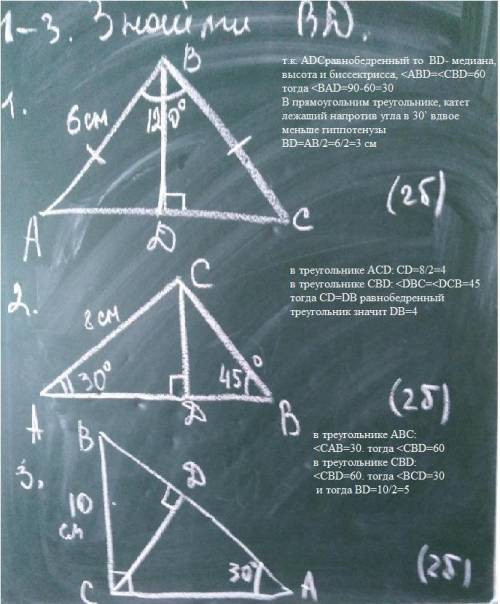 1-3. Знайти BD.
т.к. ADCравнобедренный то  BD- медиана,
высота и биссектрисса, <ABD=<CBD=60
тогда <BAD=90-60=30
В прямоугольним треугольнике, катет
лежаший напротив угла в 30˚ вдвое
меньше гиппотенузы
BD=AB/2=6/2=3 см
1.
B
6 см
120°
A
D
C
(2б)
2.
C
8 см
30°
45°
A
D
B
в треугольнике ACD: CD=8/2=4
в треугольнике CBD: <DBC=<DCB=45
тогда CD=DB равнобедренный
треугольник значит DB=4
(2б)
3.
B
10
см
D
30°
C
A
в треугольнике ABC:
<CAB=30. тогда <CBD=60
в треугольнике CBD:
<CBD=60. тогда <BCD=30
и тогда BD=10/2=5
(2б)